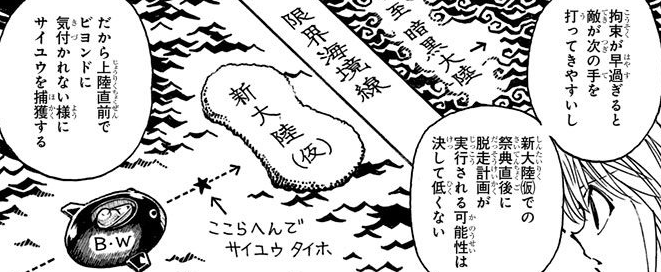 拘束が早過ぎると
敵が次の手を
打ってきやすいし
新大陸(仮)での
祭典直後に
脱走計画が
実行される可能性は
決して低くない
至暗黒大陸→
限界海境線
新大陸(仮)
ここらへんで
サイユウ タイホ
B・W
だから上陸直前で
ビヨンドに
気付かれない様に
サイユウを捕獲する